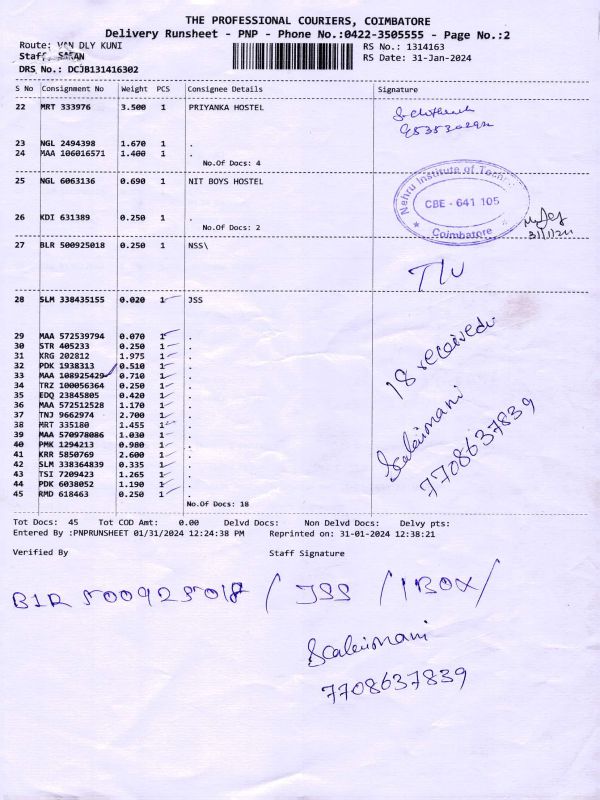 THE PROFESSIONAL COURIERS, COIMBATORE
Delivery Runsheet - PNP - Phone No.:0422-3505555 - Page No.:2
Route: VAN DLY KUNI RS No.: 1314163
Staff: RS Date: 31-Jan-2024
DRS No.: DCJB131416302
S No Consignment No Weight PCS Consignee Details Signature
22 MRT 333976 3.500 1 PRIYANKA HOSTEL
23 NGL 2494398 1.670 1 .
24 MAA 106016571 1.400 1 .
No.Of Docs: 4
25 NGL 6063136 0.690 1 NIT BOYS HOSTEL
Nehru Institute of Tech
CBE - 641 105
Coimbatore
26 KDI 631389 0.250 1 .
31/1/24
No.Of Docs: 2
27 BLR 500925018 0.250 1 NSS\
28 SLM 338435155 0.020 1 JSS
29 MAA 572539794 0.070 1 .
30 STR 405233 0.250 1 .
31 KRG 202812 1.975 1 .
32 PDK 1938313 0.510 1 .
33 MAA 108925429 0.710 1 .
34 TRZ 100056364 0.250 1 .
35 EDQ 23845805 0.420 1 .
36 MAA 572512528 1.170 1 .
37 TNJ 9662974 2.700 1 .
38 MRT 335180 1.455 1 .
39 MAA 570978086 1.030 1 .
40 PMK 1294213 0.980 1 .
41 KRR 5850769 2.600 1 .
42 SLM 338364839 0.335 1 .
43 TSI 7209423 1.265 1 .
44 PDK 6038052 1.190 1 .
45 RMD 618463 0.250 1 .
18 received
7708637839
No.Of Docs: 18
Tot Docs: 45 Tot COD Amt: 0.00 Delvd Docs: Non Delvd Docs: Delvy pts:
Entered By :PNPRUNSHEET 01/31/2024 12:24:38 PM Reprinted on: 31-01-2024 12:38:21
Verified By Staff Signature
BLR 500925018 / JSS / 1 BOX /
7708637839